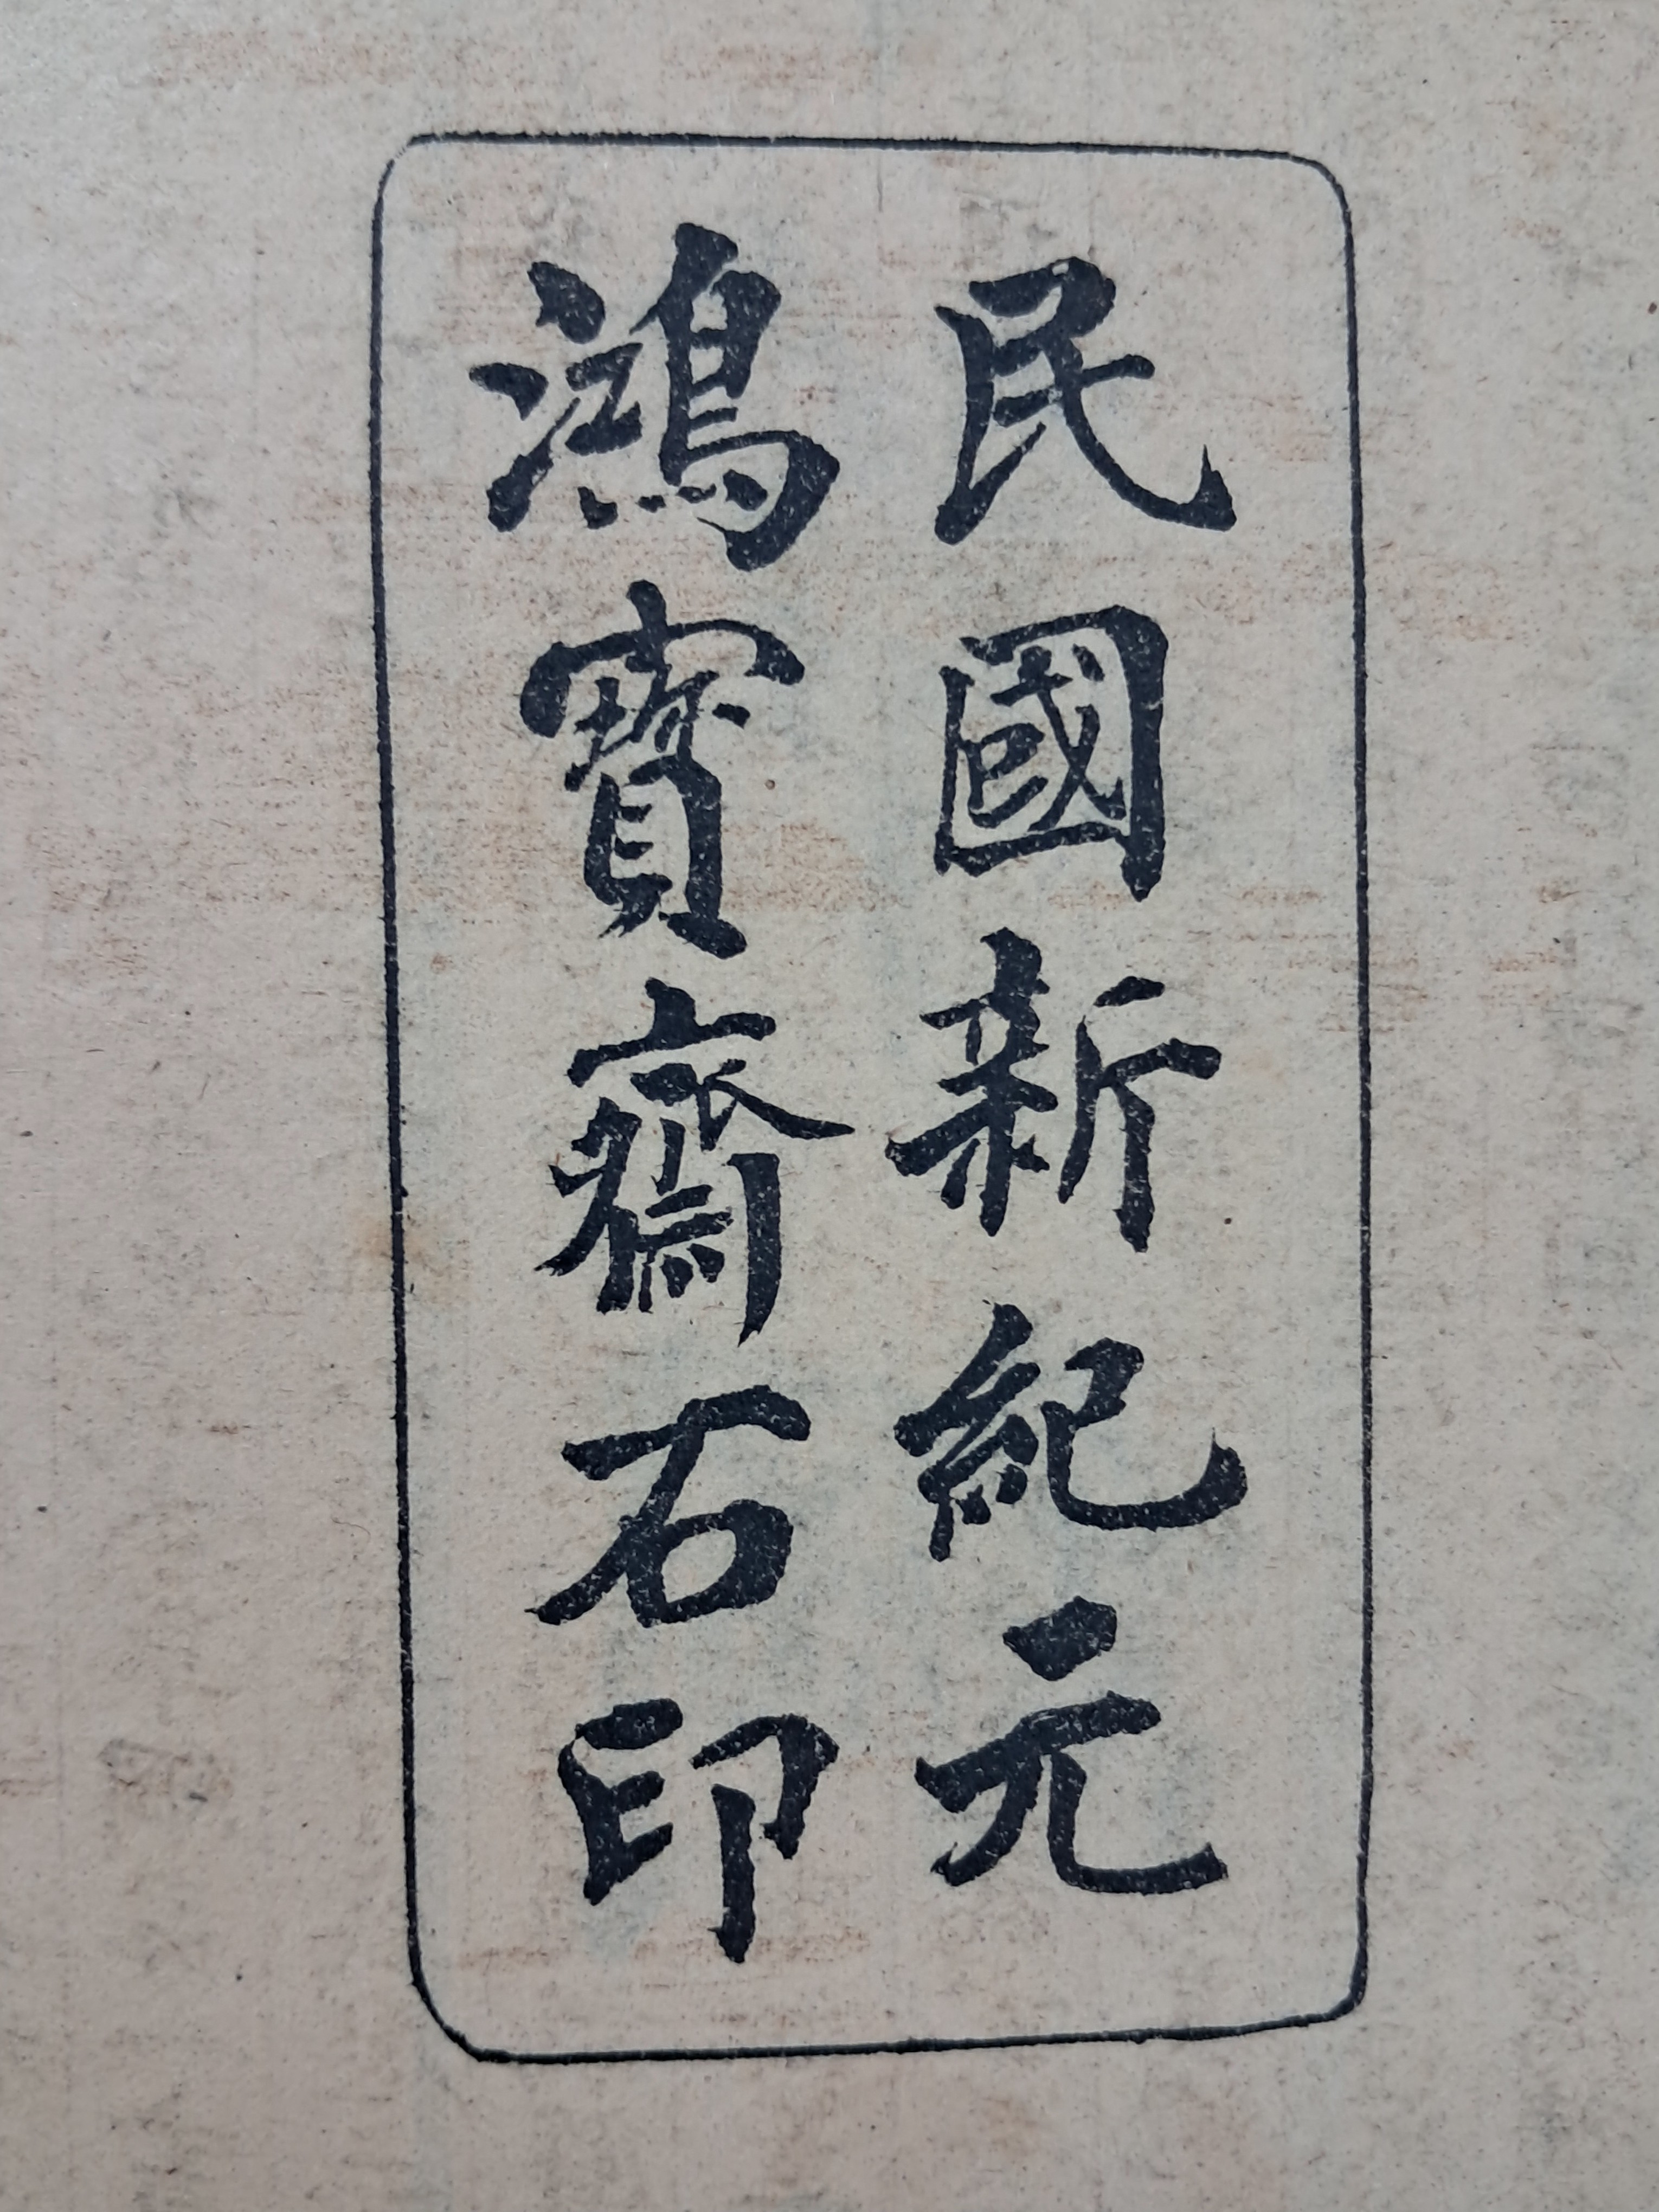 民國新紀元
鴻寶齋石印